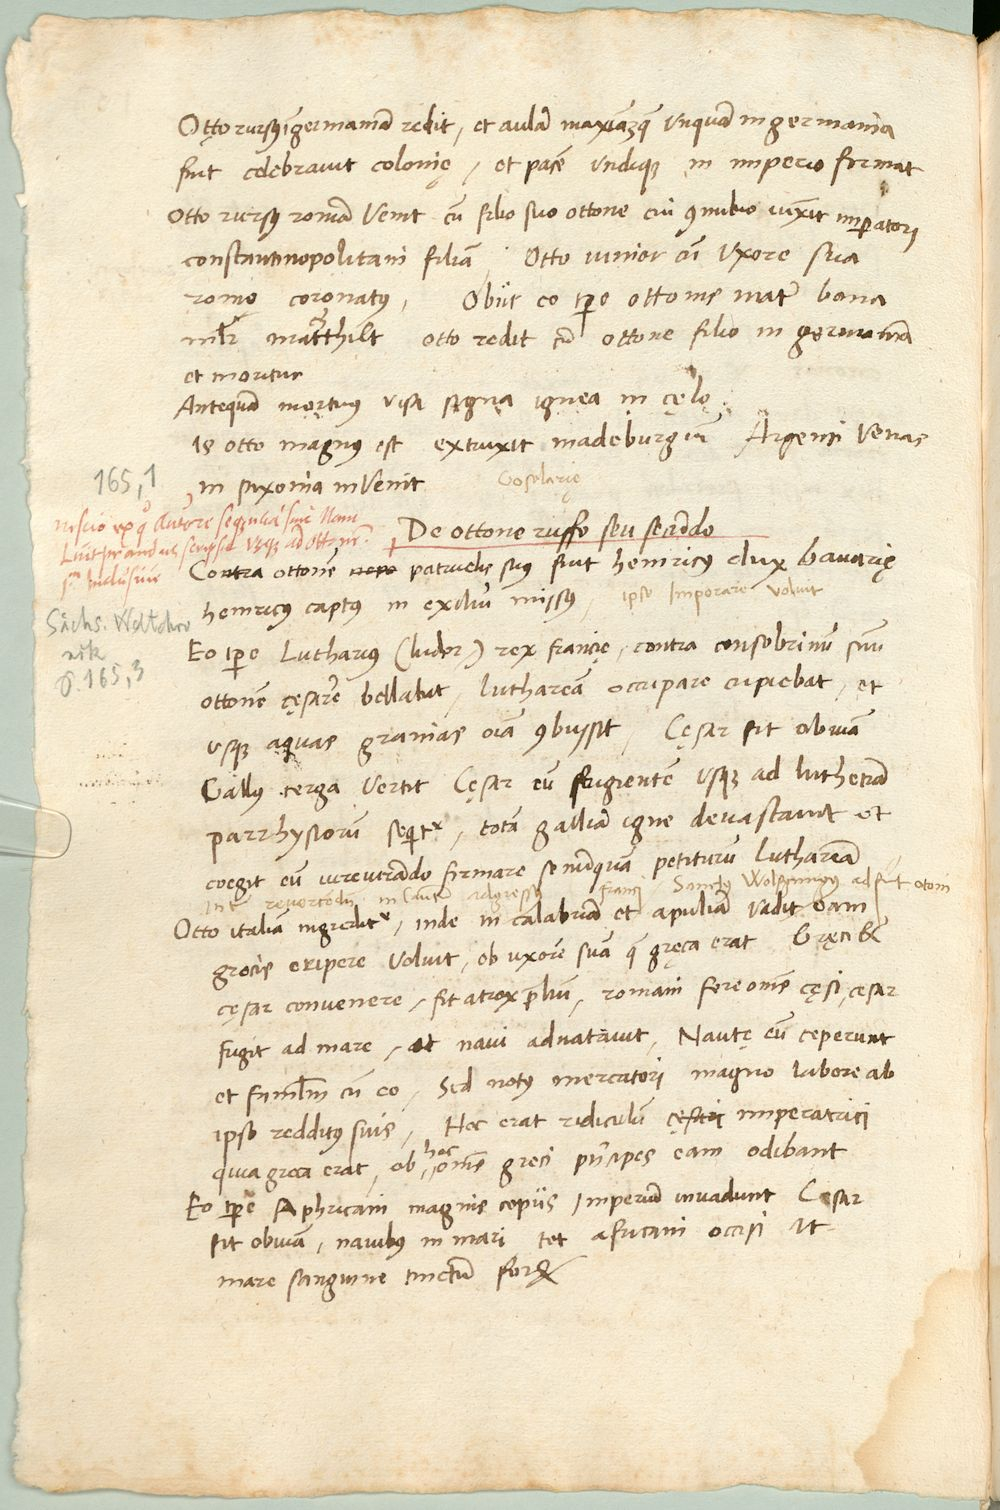 Otto rursus in germaniā redit, et aulā maxīāqȝ vnquā in germania
fuit celebrauit colonię, et pacē vndiqȝ in imperio format
Otto rursus romā venit cū filio suo ottone cui ꝯnubio iuxit imꝑatori
constantinopolitani filiā Otto iunior cū vxore sua
romę coronatus, Obiit eo tꝑe ottonis mater bona
mlr matthilt otto redit cū ottone filio in germaniā
et moritur
Antequā mortuus visa signa ignea in cęlo
is otto magnus est extruxit madeburgūm Argenti venas
in saxonia invenit Goselarię
165,1
nescio ex quo Autore sequentia sint Nam
Luitprandus scripsit vsqȝ ad Ott pm
inclusiue
De ottone ruffo seu secūdo
Contra ottonē patruelis suus fuit heinricus dux bavarię
heinricus captus in exiliū missus, ipse Imperare voluit
Sächs. Weltchro
nik
S. 165,3
Eo tꝑe Lutharius (luder) rex francię, contra consobrinū suū
ottonē cęsarē bellabat, luthareā occupare cupiebat, et
vsqȝ aquas granias oīa ꝯbussit, Cęsar fit obuiā
Gallus terga vertit Cęsar eū fugientē vsqȝ ad luthetiā
parrhysiorū seqitr, totā galliā igne deuastauit et
coegit eū iureiurādo firmare se nunquā petiturū luthareā
Otto italiā ingreditr, inde in calabriā et apuliā vadit eam
grecis eripere voluit, ob uxorē suā q̄ gręca erat Gręci &
cęsar convenere, fit atrox p̄liū, romani fere omēs cęsi, cęsar
fugit ad mare, et naui adnatauit, Nautę eū ceperunt
et fīmlm cū eo, Sed notus mercatori magno labore ab
ipso redditus suis, Hoc erat ridiculū cęsari imperatrici
quia greca erat, ob hoc omēs greci pn̄cipes eam odibant
Eo tꝑe Aphricani magnis copiis Imperiū inuadunt Cęsar
fit obuiā, nauibus in mari tot africani occisi ut
mare sanguine tinctū